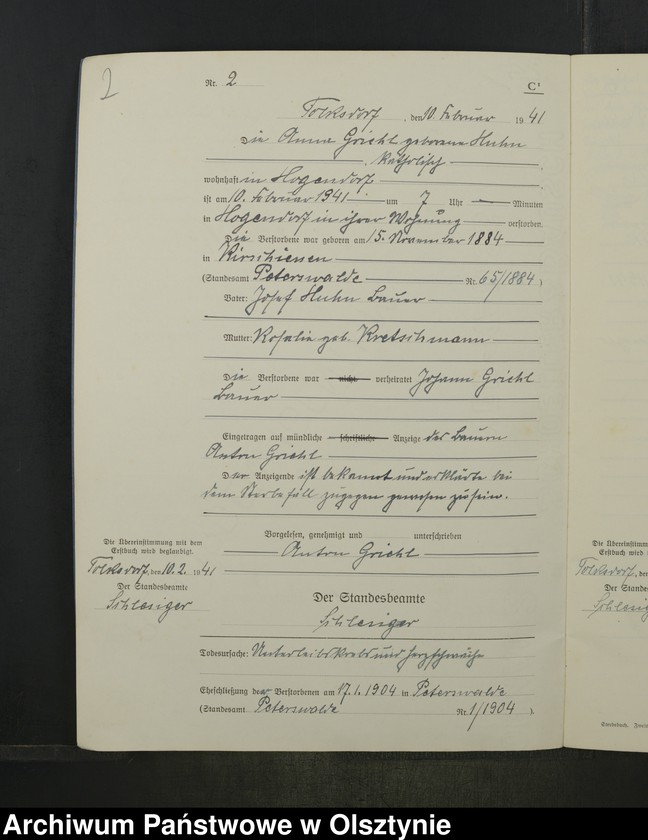 2
Nr. 2
C¹
Tolksdorf, den 10. Februar 1941
Die Anna Griehl geborene Huhn
, katholisch
wohnhaft in Hogendorf
ist am 10. Februar 1941 um 7 Uhr Minuten
in Hogendorf in ihrer Wohnung verstorben.
Die Verstorbene war geboren am 15. November 1884
in Kirschienen
(Standesamt Peterswalde Nr. 65/1884)
Vater: Josef Huhn Bauer
Mutter: Rosalie geb. Kretschmann
Die Verstorbene war nicht verheiratet Johann Griehl
Bauer
Eingetragen auf mündliche schriftliche Anzeige des Bauern
Anton Griehl
Der Anzeigende ist bekannt und erklärte bei
dem Sterbefall zugegen gewesen zu sein.
Vorgelesen, genehmigt und unterschrieben
Anton Griehl
Die Übereinstimmung mit dem
Erstbuch wird beglaubigt.
Tolksdorf, den 10.2. 1941
Der Standesbeamte
Schlesiger
Der Standesbeamte
Schlesiger
Todesursache: Unterleibskrebs und Herzschwäche
Eheschließung der Verstorbenen am 17.1.1904 in Peterswalde
(Standesamt Peterswalde Nr. 1/1904 ).
Die Übereinstimm
Erstbuch wird
Tolksdorf, den
Der Stande
Schlesig
Archiwum Państwowe w Olsztynie